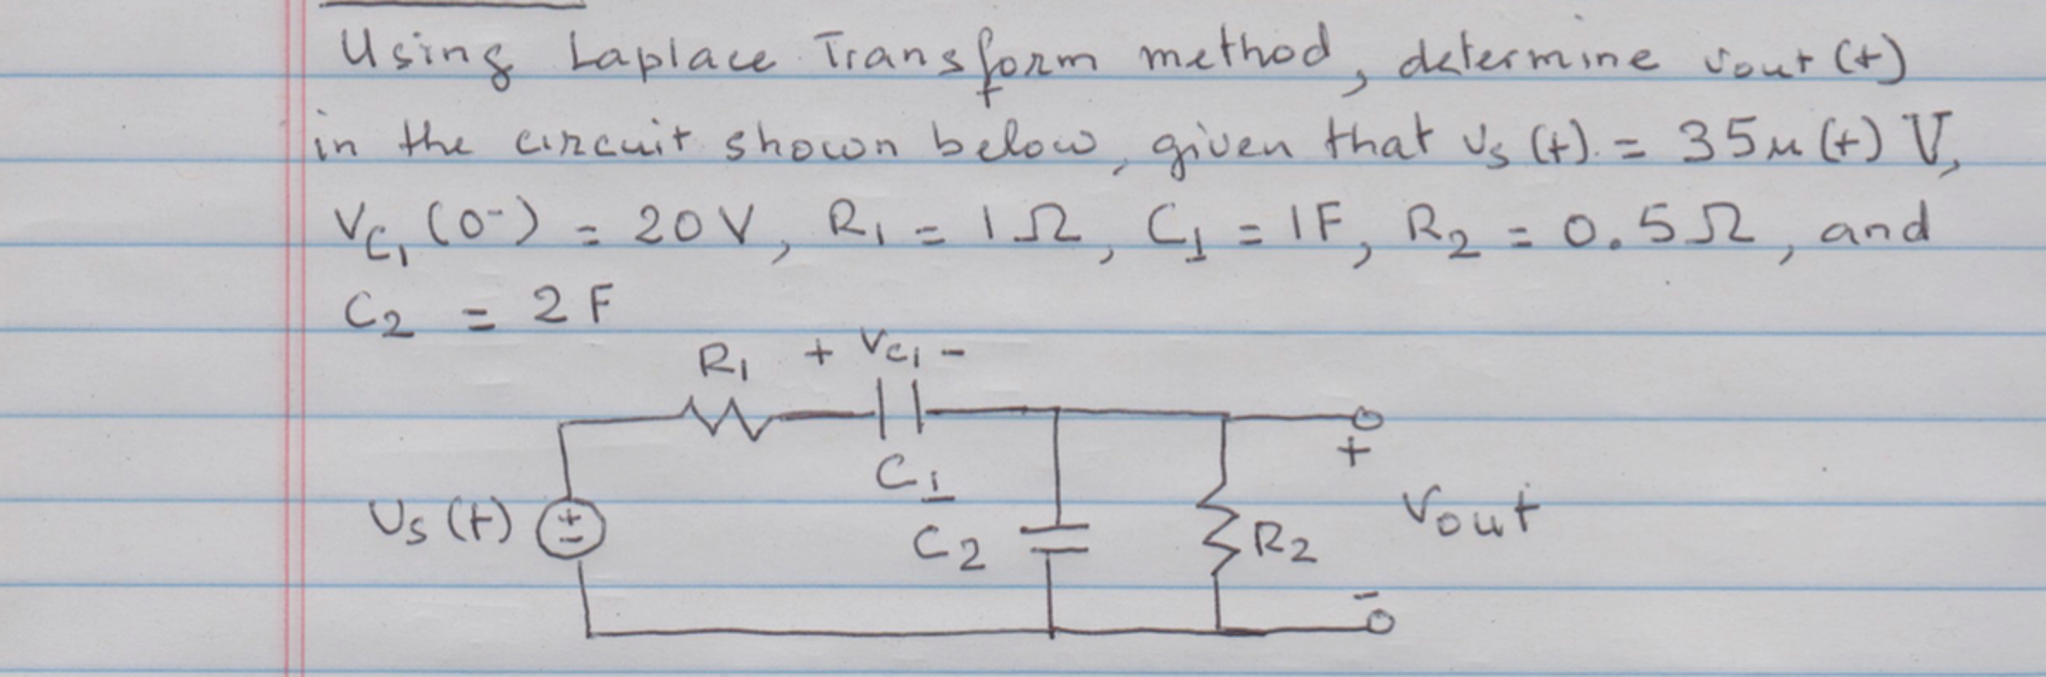 Using Laplace Transform method, determine vout(t)
in the circuit shown below, given that vs(t) = 35u(t) V,
VC1(0-) = 20V, R1 = 1Ω, C1 = 1F, R2 = 0.5Ω, and
C2 = 2F
R1 + VC1 -
C1
Vs(t) + - C2 R2 + Vout -